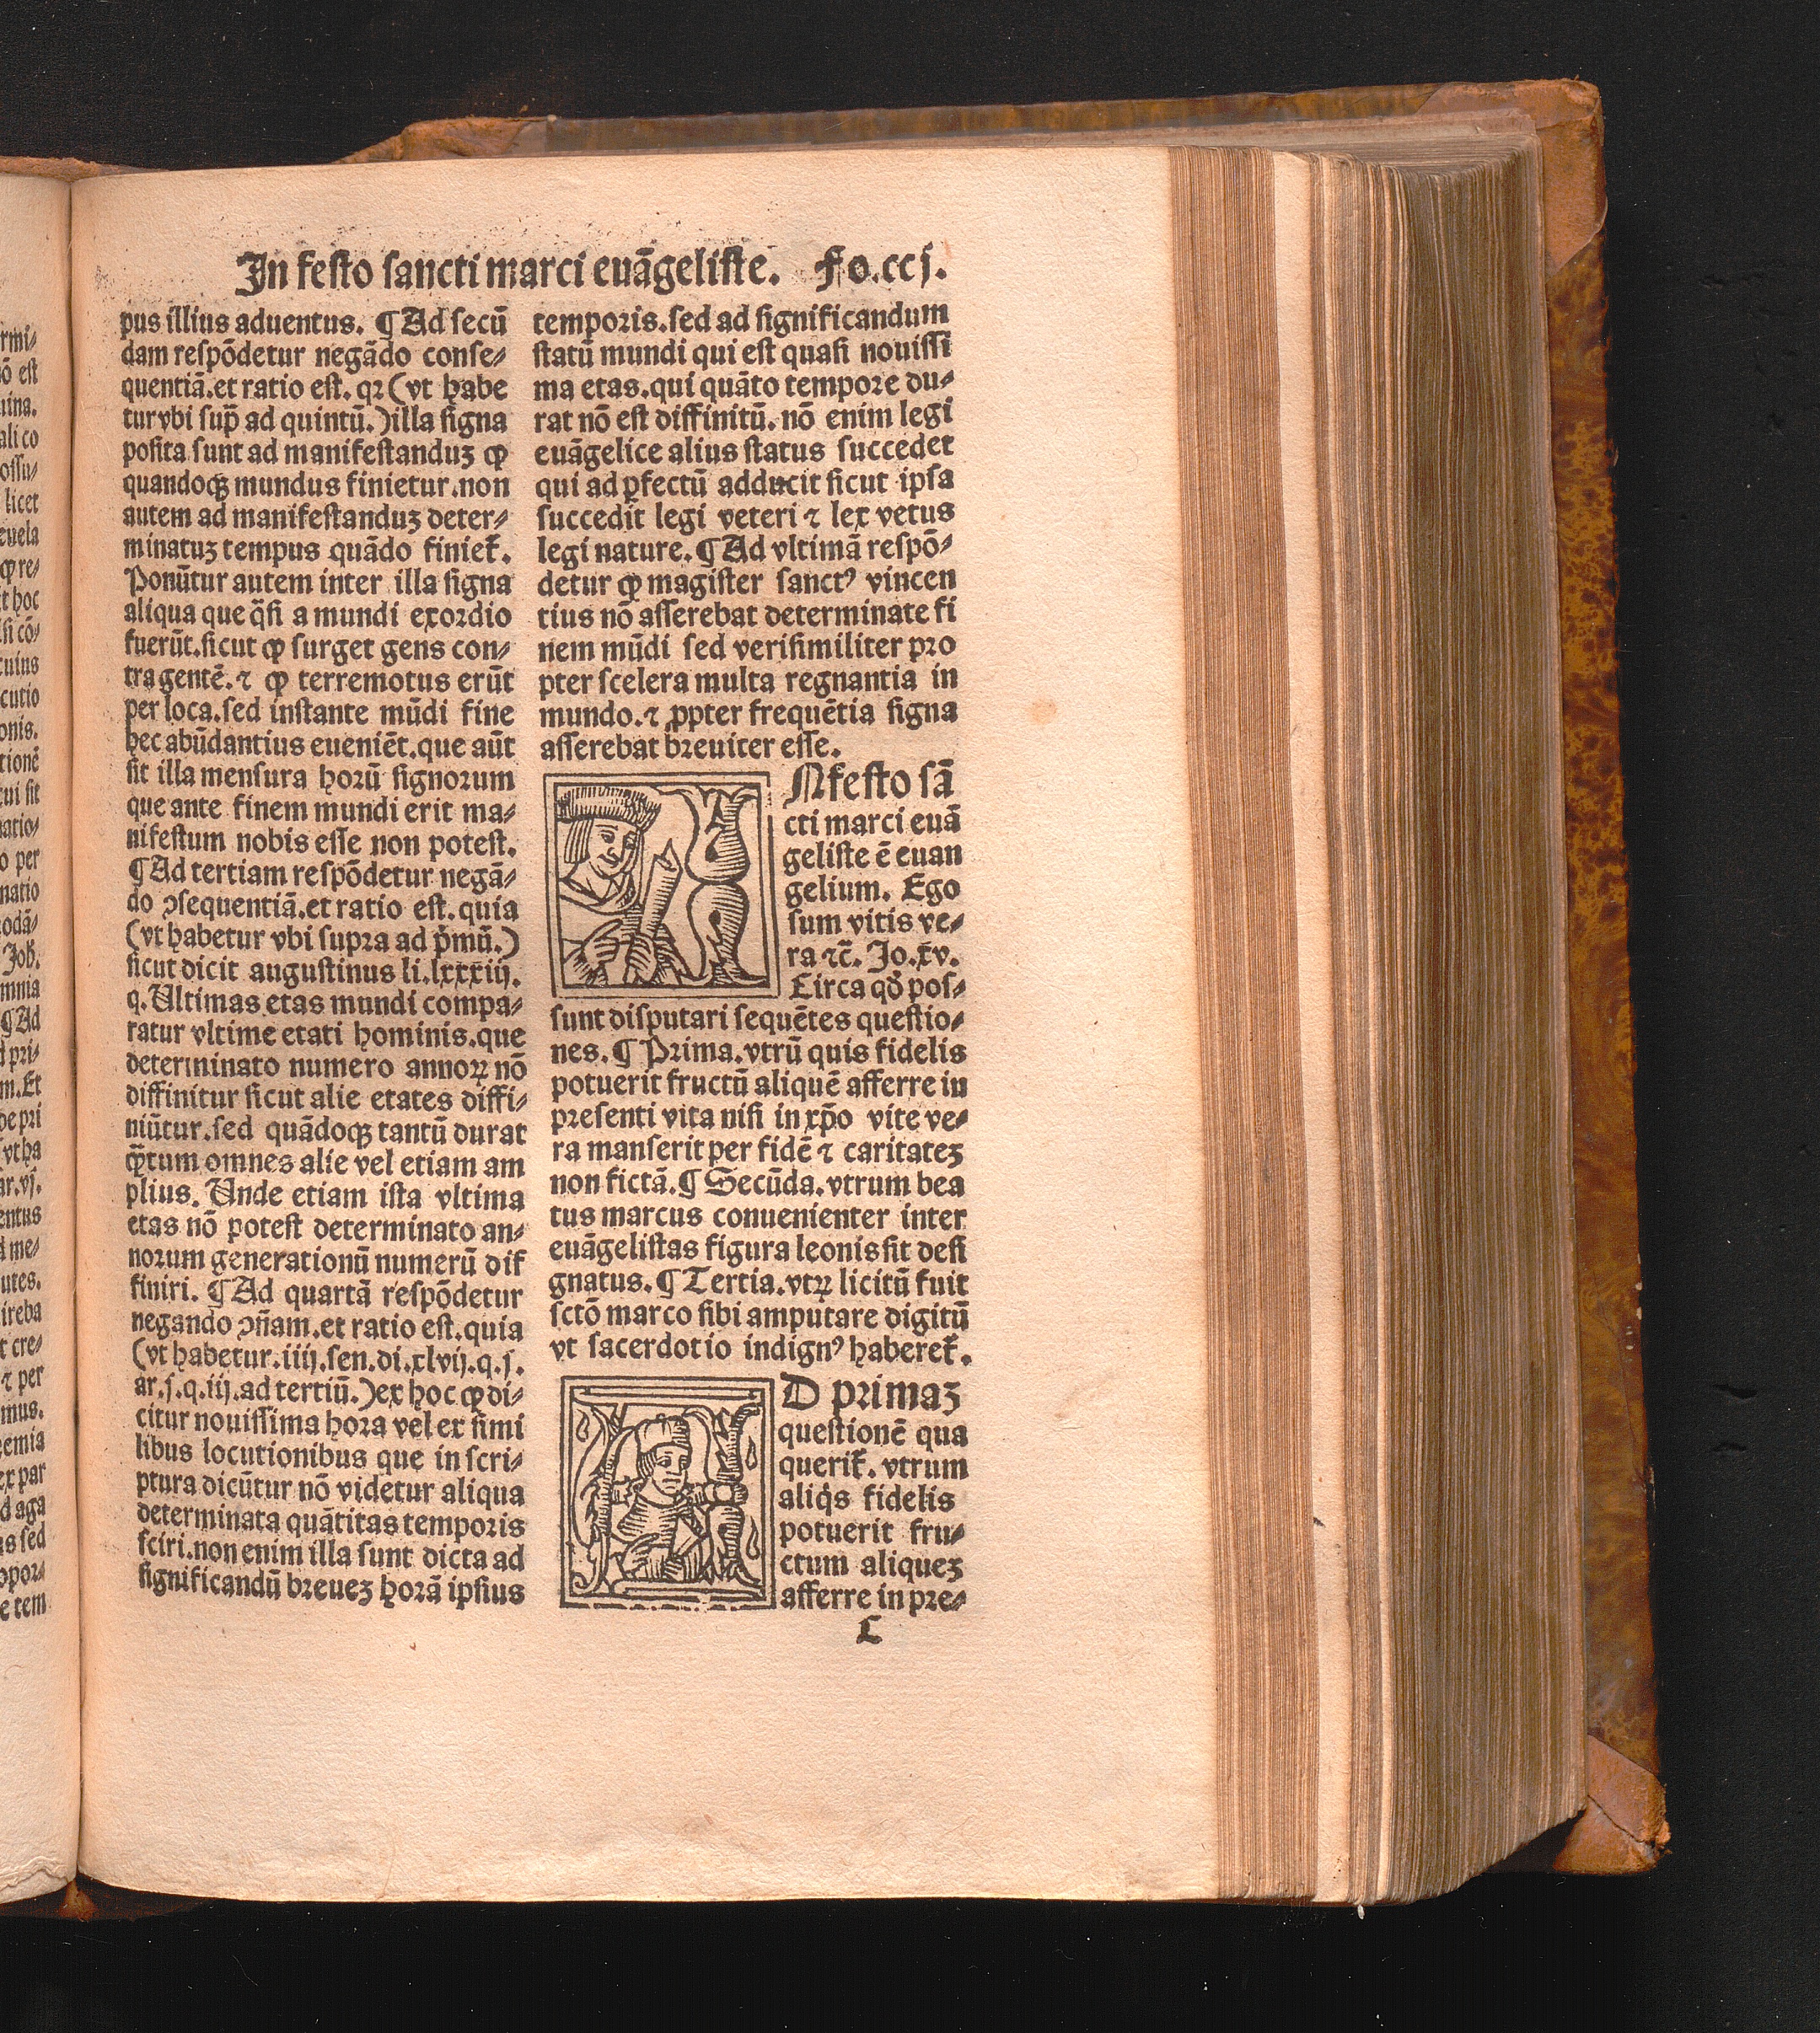 In festo sancti marci euãgeliste. Fo.ccj.
pus illius aduentus. ¶ Ad secũ
dam respõdetur negãdo conse⸗
quentiã.et ratio est. qꝛ (vt habe
tur vbi sup̃ ad quintũ.)illa signa
posita sunt ad manifestanduꝫ ꝙ
quandoqꝫ mundus finietur.non
autem ad manifestanduꝫ deter⸗
minatuꝫ tempus quãdo finiet̃.
Ponũtur autem inter illa signa
aliqua que q̃si a mundi exordio
fuerũt.sicut ꝙ surget gens con⸗
tra gentẽ.⁊ ꝙ terremotus erũt
per loca.sed instante mũdi fine
hec abũdantius eueniẽt.que aũt
sit illa mensura horũ signorum
que ante finem mundi erit ma⸗
nifestum nobis esse non potest.
¶ Ad tertiam respõdetur negã⸗
do ↄsequentiã.et ratio est.quia
(vt habetur vbi supra ad p̍mũ.)
sicut dicit augustinus li.lxxxiij.
q. Ultimas etas mundi compa⸗
ratur vltime etati hominis.que
determinato numero annoꝝ nõ
diffinitur sicut alie etates diffi⸗
niũtur.sed quãdoqꝫ tantũ durat
q̃tum omnes alie vel etiam am
plius. Unde etiam ista vltima
etas nõ potest determinato an⸗
norum generationũ numerũ dif
finiri. ¶ Ad quartã respõdetur
negando ↄñam.et ratio est.quia
(vt habetur.iiij.sen.di.xlvij.q.j.
ar.j.q.iij.ad tertiũ.)ex hoc ꝙ di⸗
citur nouissima hora vel ex simi
libus locutionibus que in scri⸗
ptura dicũtur nõ videtur aliqua
determinata quãtitas temporis
sciri.non enim illa sunt dicta ad
significandũ breueꝫ horã ipsius
temporis.sed ad significandum
statũ mundi qui est quasi nouissi
ma etas.qui quãto tempore du⸗
rat nõ est diffinitũ. nõ enim legi
euãgelice alius status succedet
qui ad ꝑfectũ adducit sicut ipsa
succedit legi veteri ⁊ lex vetus
legi nature. ¶ Ad vltimã respõ⸗
detur ꝙ magister sanctꝰ vincen
tius nõ asserebat determinate fi
nem mũdi sed verisimiliter pro
pter scelera multa regnantia in
mundo.⁊ ꝓpter frequẽtia signa
asserebat breuiter esse.
IN festo sã
cti marci euã
geliste ẽ euan
gelium. Ego
sum vitis ve⸗
ra ⁊c̃. Jo.xv.
Circa qď pos⸗
sunt disputari sequẽtes questio⸗
nes. ¶ Prima.vtrũ quis fidelis
potuerit fructũ aliquẽ afferre in
presenti vita nisi in xp̃o vite ve⸗
ra manserit per fidẽ ⁊ caritateꝫ
non fictã. ¶ Secũda.vtrum bea
tus marcus conuenienter inter
euãgelistas figura leonis sit desi
gnatus. ¶ Tertia.vtꝝ licitũ fuit
sctõ marco sibi amputare digitũ
vt sacerdotio indignꝰ haberet̃.
AD primaꝫ
questionẽ qua
querit̃. vtrum
aliq̍s fidelis
potuerit fru⸗
ctum aliqueꝫ
afferre in pre⸗